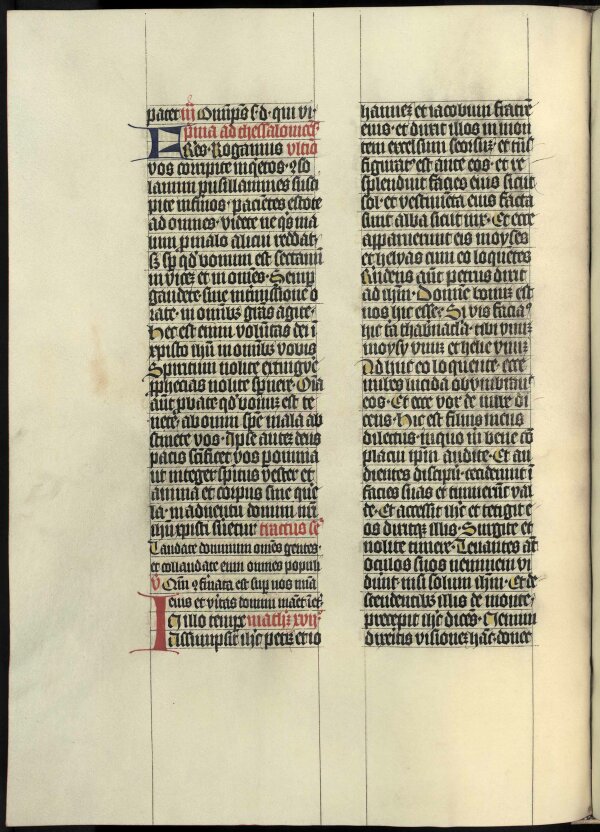 pater iij Om̅ps s d qui vi
prima ad thessalonicēs
Frēs Rogamus vltīo
vos corripite inq̄etos ꝯso
lamini pusillanimes susci
pite infirmos pacientes estote
ad omnes videte ne q̄s ma
lum p malo alicui reddat
sꝫ sp qd bonum est sectami
in vicēꝫ et in om̅es Semp
gaudete sine intmissione o
rate in om̅ibꝰ grās agite
Hec est enim volūtas dei ī
xp̅isto ihū in om̅ibꝰ vobis
Spiritum nolite extīgue
pphecias nolite spnere Om̅ia
aūt pbate qd bonum est te
nete ab omni spē mala ab
stinete vos Ipse autēꝫ deus
pacis sc̄ificet vos p omnia
ut integer spiritus vester et
anima et corpus sine que
la in aduentu domini nr̄i
ihū xpisti suetur tractus
Laudate dominum om̅es gentes
et collaudate eum omnes populi
℣ Qm̅ ꝯfirmata est sup nos mīa
eius et vitas domini manet
In illo tempe mathꝫ xvij
Assumpsit ihc petrꝫ et io
hannēꝫ et iacobum fratrē
eius et duxit illos in mon
tem excelsum seorsuꝫ et tns
figurat est ante eos et re
splenduit facies eius sicut
sol et vestimēta eius facta
sunt alba sicut nix Et ecce
apparuerunt eis moyses
et helyas cum eo loquētes
Rndens aūt petrus dixit
ad ihm Domine bonuꝫ est
nos hic esse Si vis facia
hic tā thabnacla tibi vnuꝫ
moysy vnuꝫ et helie vnuꝫ
Ad huc eo loquente ecce
nubes lucida obumbrauit
eos Et ecce vox de nube di
cens Hic est filius meus
dilectus in quo m bene cō
placui ipm̅ audite Et au
dientes discipuli ceciderunt ī
facies suas et timuerūt val
de Et accessit ihc et tetigit e
os dixitqꝫ illis Surgite et
nolite timere Leuantes aūt
oculos suos neminem vi
dūnt nisi solum ihm̅ Et de
scendentibꝰ illis de monte
precepit ihc dicēs Nemini
dixeritis visionēꝫ hāc donec